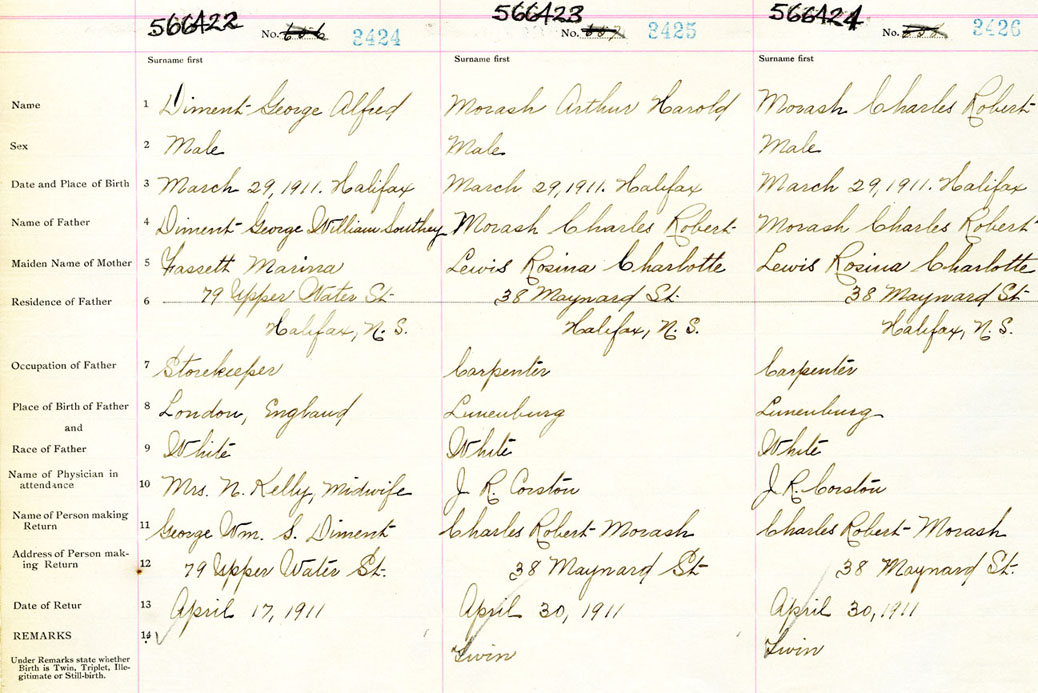 566422 566423 566424
No. 3424 No. 3425 No. 3426
Surname first Surname first Surname first
Name 1 Diment George Alfred Morash Arthur Harold Morash Charles Robert
Sex 2 Male Male Male
Date and Place of Birth 3 March 29, 1911. Halifax March 29, 1911. Halifax March 29, 1911. Halifax
Name of Father 4 Diment George William Southey Morash Charles Robert Morash Charles Robert
Maiden Name of Mother 5 Fassett Marina Lewis Rosina Charlotte Lewis Rosina Charlotte
Residence of Father 6 79 Upper Water St. 38 Maynard St. 38 Maynard St.
Halifax, N. S. Halifax, N. S. Halifax, N. S.
Occupation of Father 7 Storekeeper Carpenter Carpenter
Place of Birth of Father 8 London, England Lunenburg Lunenburg
and
Race of Father 9 White White White
Name of Physician in
attendance 10 Mrs. N. Kelly, Midwife J. R. Corston J. R. Corston
Name of Person making
Return 11 George Wm. S. Diment Charles Robert Morash Charles Robert Morash
Address of Person mak-
ing Return 12 79 Upper Water St. 38 Maynard St 38 Maynard St.
Date of Retur 13 April 17, 1911 April 30, 1911 April 30, 1911
REMARKS 14
Under Remarks state whether Twin Twin
Birth is Twin, Triplet, Ille-
gitimate or Still-birth.